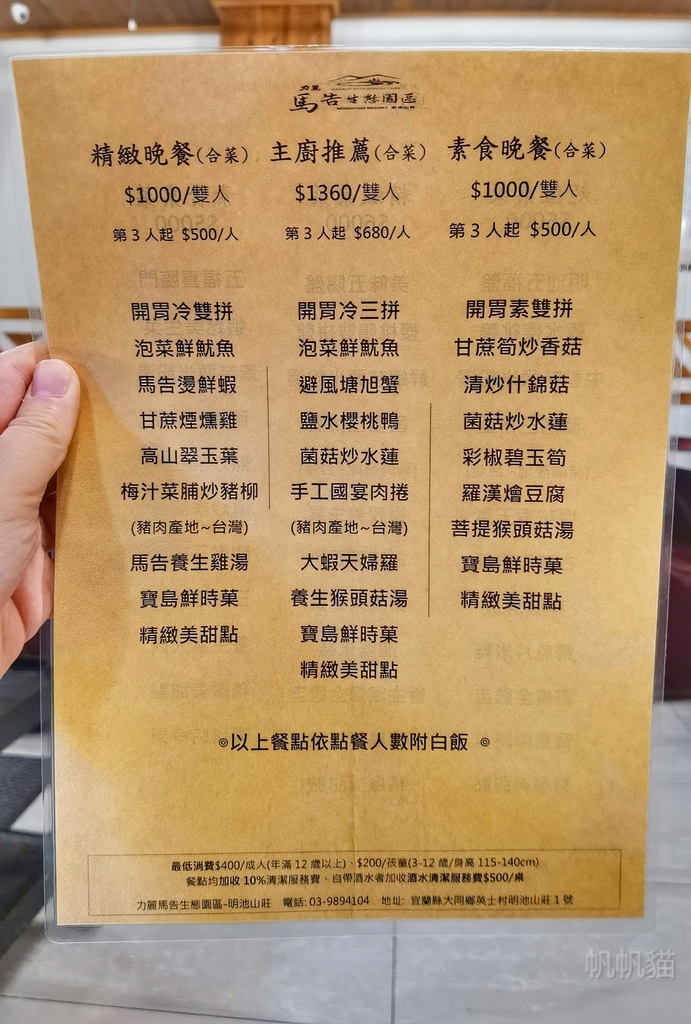 力麗
馬告生態園區
精緻晚餐(合菜)
$1000/雙人
第 3 人起 $500/人
開胃冷雙拼
泡菜鮮魷魚
馬告燙鮮蝦
甘蔗煙燻雞
高山翠玉葉
梅汁菜脯炒豬柳
(豬肉產地~台灣)
馬告養生雞湯
寶島鮮時菓
精緻美甜點
主廚推薦(合菜)
$1360/雙人
第 3 人起 $680/人
開胃冷三拼
泡菜鮮魷魚
避風塘旭蟹
鹽水櫻桃鴨
菌菇炒水蓮
手工國宴肉捲
(豬肉產地~台灣)
大蝦天婦羅
養生猴頭菇湯
寶島鮮時菓
精緻美甜點
素食晚餐(合菜)
$1000/雙人
第 3 人起 $500/人
開胃素雙拼
甘蔗筍炒香菇
清炒什錦菇
菌菇炒水蓮
彩椒碧玉筍
羅漢燴豆腐
菩提猴頭菇湯
寶島鮮時菓
精緻美甜點
◎以上餐點依點餐人數附白飯 ◎
最低消費$400/成人(年滿 12 歲以上)、$200/孩童(3-12 歲/身高 115-140cm)
餐點均加收 10%清潔服務費、自帶酒水者加收酒水清潔服務費$500/桌
力麗馬告生態園區-明池山莊 電話: 03-9894104 地址: 宜蘭縣大同鄉英士村明池山莊 1 號
帆帆貓